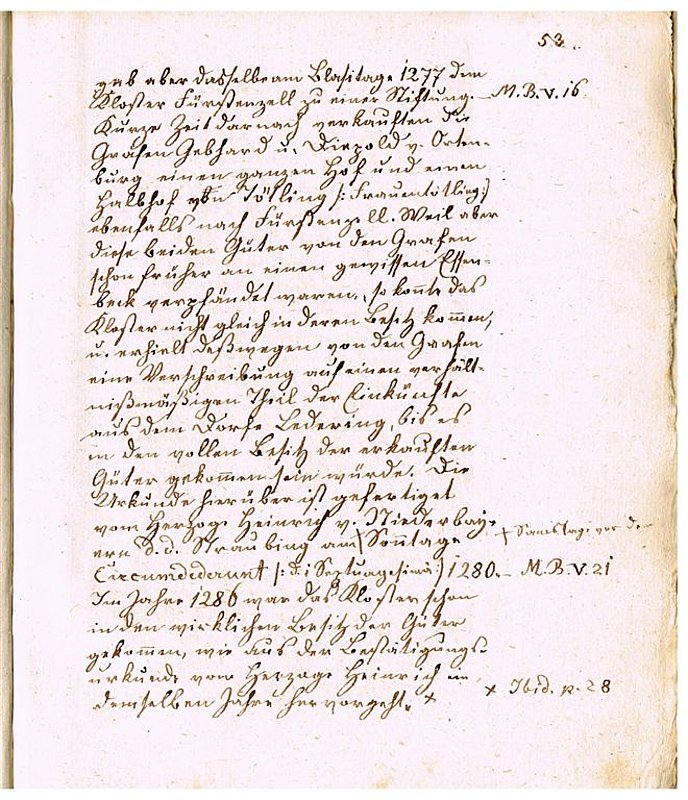 53.
gab aber dasselbe am Blasitage 1277 dem
Kloster Fürstenzell zu einer Stiftung. – M. B. V. 16
Kurze Zeit darnach verkauften die
Grafen Gebhard u. Diepold v. Orten-
burg einen ganzen Hof und einen
Halbhof von Tötling /: Frauentötling :/
ebenfalls nach Fürstenzell. Weil aber
diese beiden Güter von den Grafen
schon früher an einen gewissen Essen-
beck verpfändet waren, so konnte das
Kloster nicht gleich in deren Besitz kommen,
u. erhielt deßwegen von den Grafen
eine Verschreibung auf einen verhält-
nißmäßigen Theil der Einkünfte
aus dem Dorfe Ledering, bis es
in den vollen Besitz der erkauften
Güter gekommen sein würde. Die
Urkunde hierüber ist gefertiget
vom Herzoge Heinrich v. Niederbay-
ern d. d. Straubing am + Sonntage + Samstage vor dem
Circumdederunt /: d. i. Septuagesimä :/ 1280. – M. B. V. 21
Im Jahre 1286 war das Kloster schon
in den wirklichen Besitz der Güter
gekommen, wie aus der Bestätigungs-
urkunde vom Herzoge Heinrich in
demselben Jahre hervorgeht. × × Ibid. p. 28